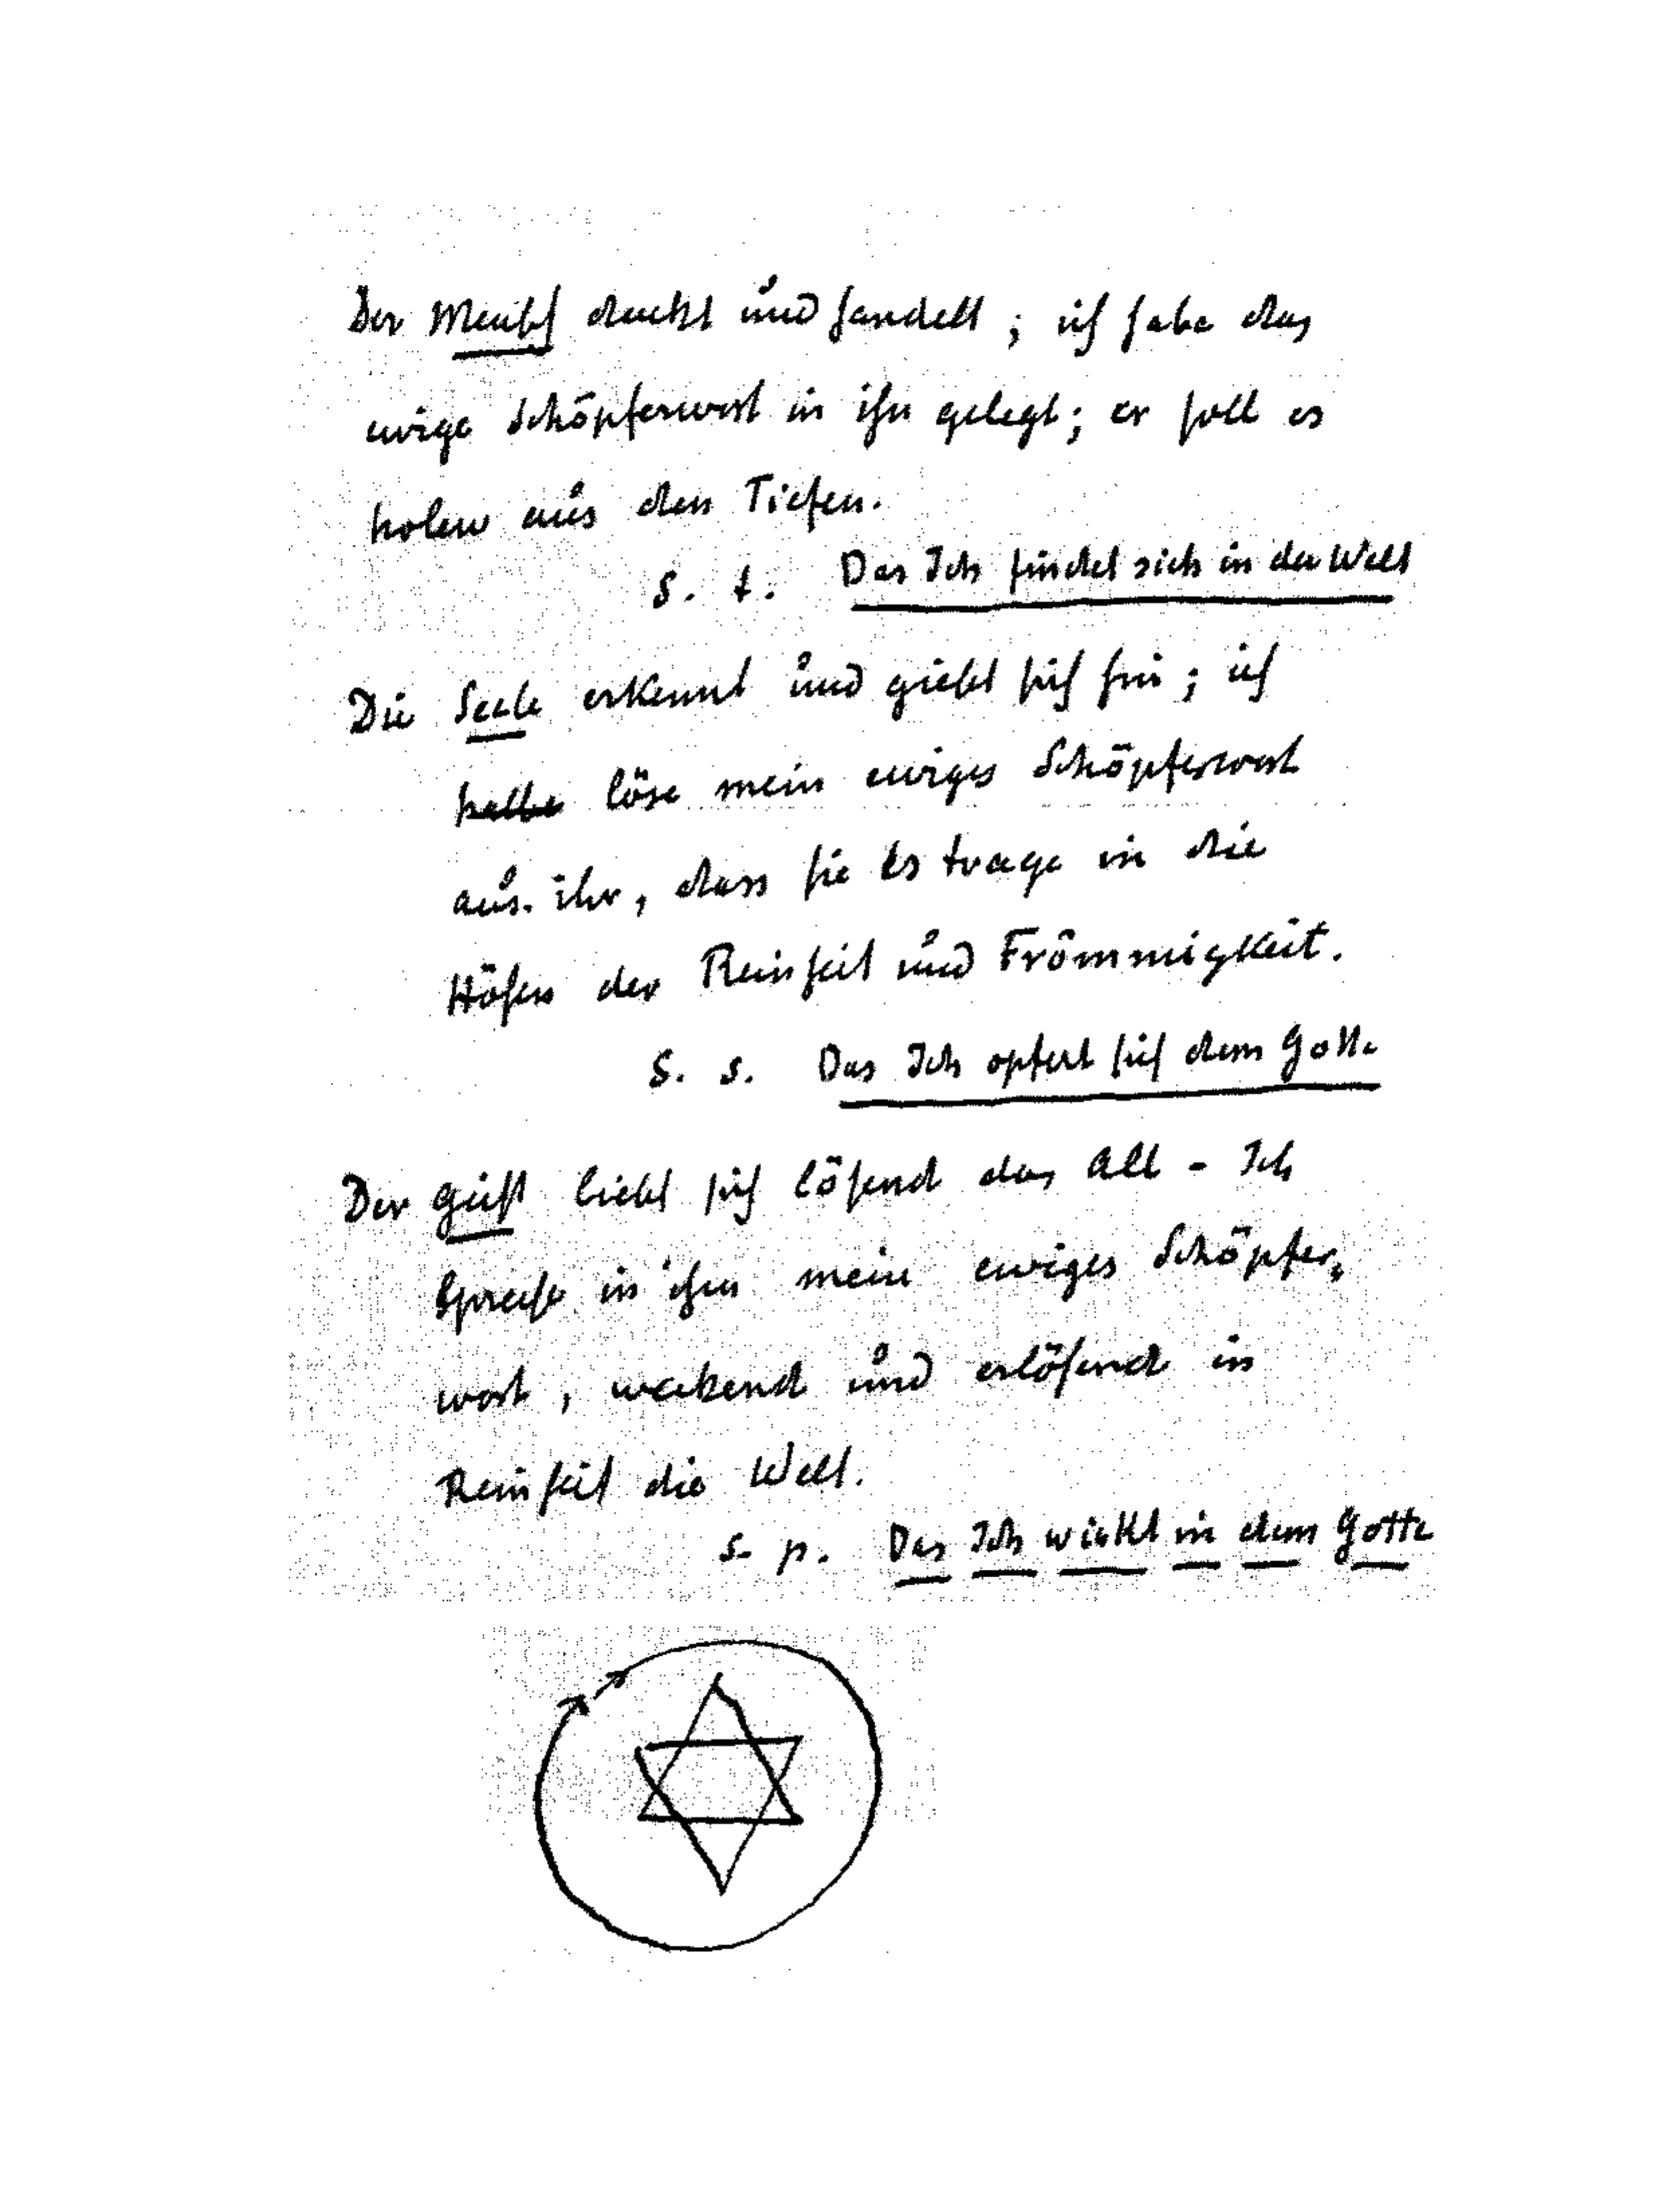 Der Mensch denkt und handelt; ich habe das
ewige Schöpferwort in ihn gelegt; er soll es
holen aus den Tiefen.
S. t. Das Ich findet sich in der Welt
Die Seele erkennt und giebt sich frei; ich
löse mein ewiges Schöpferwort
aus ihr, dass sie es trage in die
Höhen der Reinheit und Frömmigkeit.
S. s. Das Ich opfert sich dem Gotte
Der Geist liebt sich lösend das All - Ich
spreche in ihm mein ewiges Schöpfer„
wort, weckend und erlösend in
Reinheit die Welt.
S. p. Das Ich wirkt in dem Gotte